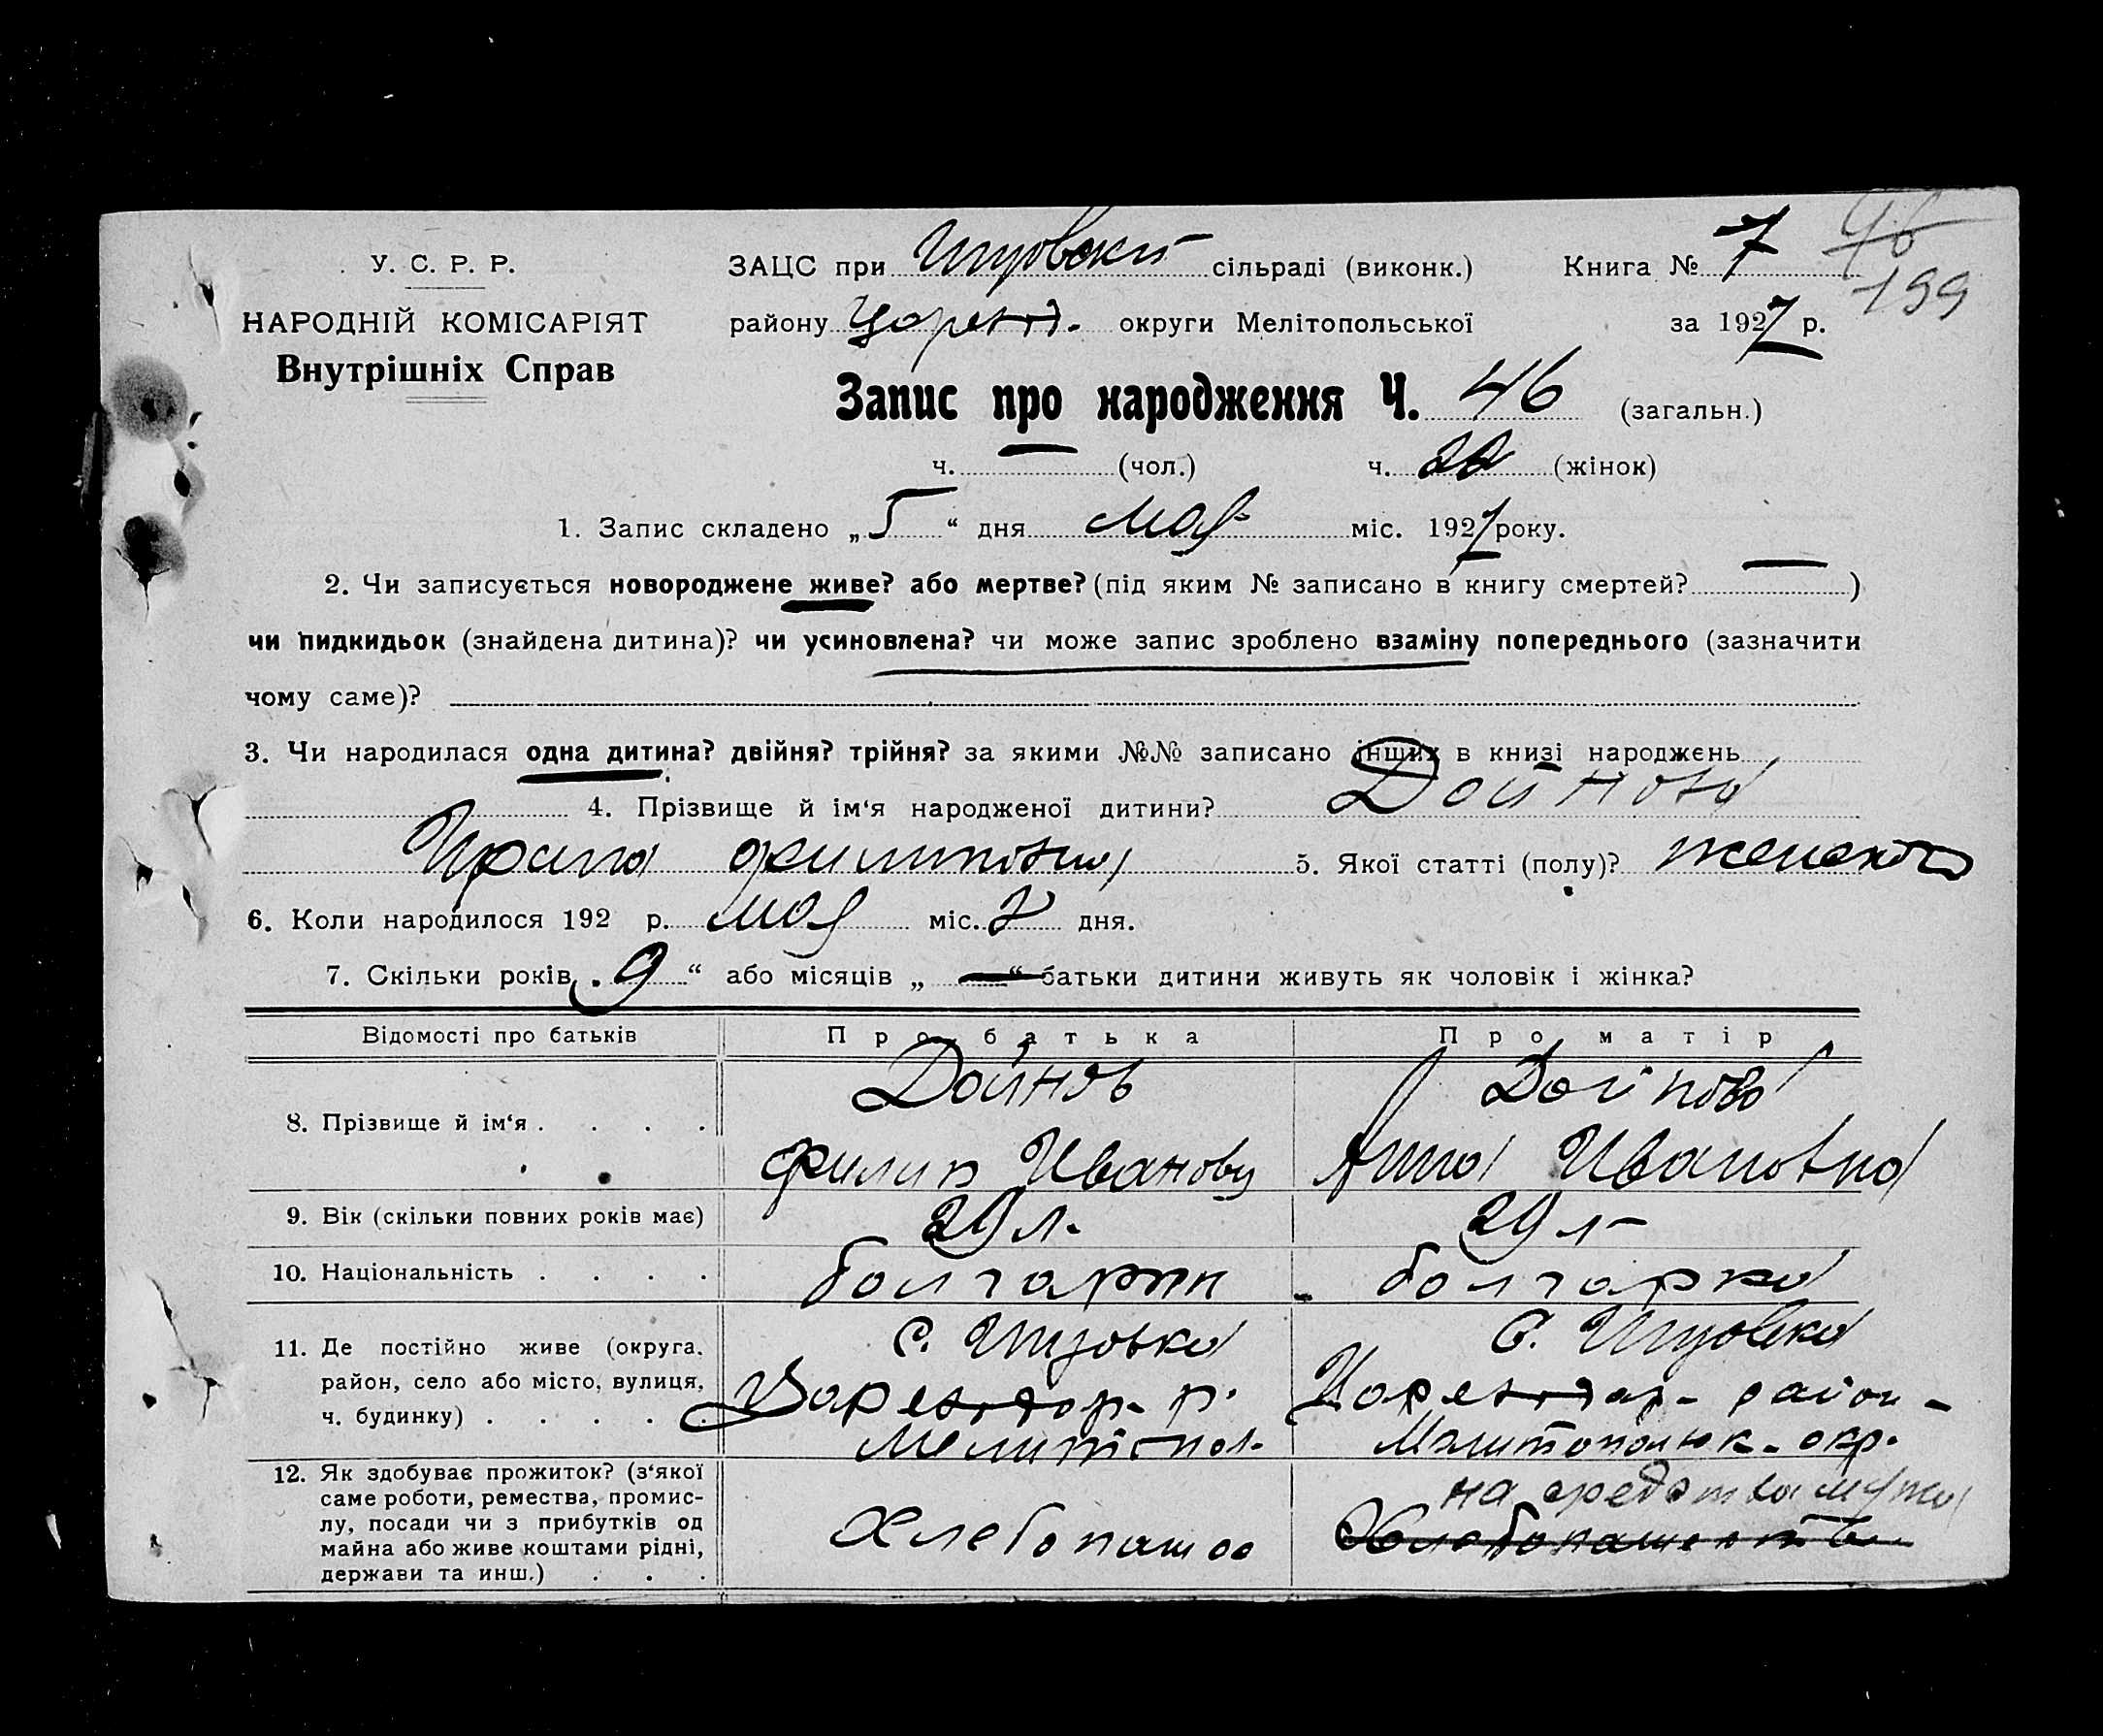 46
199
У. С. Р. Р.
НАРОДНІЙ КОМІСАРІЯТ
Внутрішніх Справ
ЗАЦС при сільраді (виконк.) Книга № 7
району округи Мелітопольської за 1927 р.
Запис про народження Ч. 46 (загальн.)
ч. — (чол.) ч. 22 (жінок)
1. Запис складено „5“ дня мая міс. 1927 року.
2. Чи записується новороджене живе? або мертве? (під яким № записано в книгу смертей? — )
чи пидкидьок (знайдена дитина)? чи усиновлена? чи може запис зроблено взаміну попереднього (зазначити
чому саме)?
3. Чи народилася одна дитина? двійня? трійня? за якими №№ записано інших в книзі народжень
4. Прізвище й ім‘я народженої дитини? Дойнова
филиповна 5. Якої статті (полу)? женского
6. Коли народилося 192 р. мая міс. 2 дня.
7. Скільки років „9“ або місяців „—“ батьки дитини живуть як чоловік і жінка?
Відомості про батьків Про батька Про матір
8. Прізвище й ім‘я . . . . Дойнов Дойнова
Филип Иванович Анна Ивановна
9. Вік (скільки повних років має) 29 л. 29 л
10. Національність . . . . болгарин болгарка
11. Де постійно живе (округа, район, село або місто, вулиця, ч. будинку) . . . . .
с.
р.
Мелитопол.
С.
район
Мелитопольск. окр.
12. Як здобуває прожиток? (з‘якої саме роботи, ремества, промислу, посади чи з прибутків од майна або живе коштами рідні, держави та инш.) . . .
Хлебопаш
на средства мужа